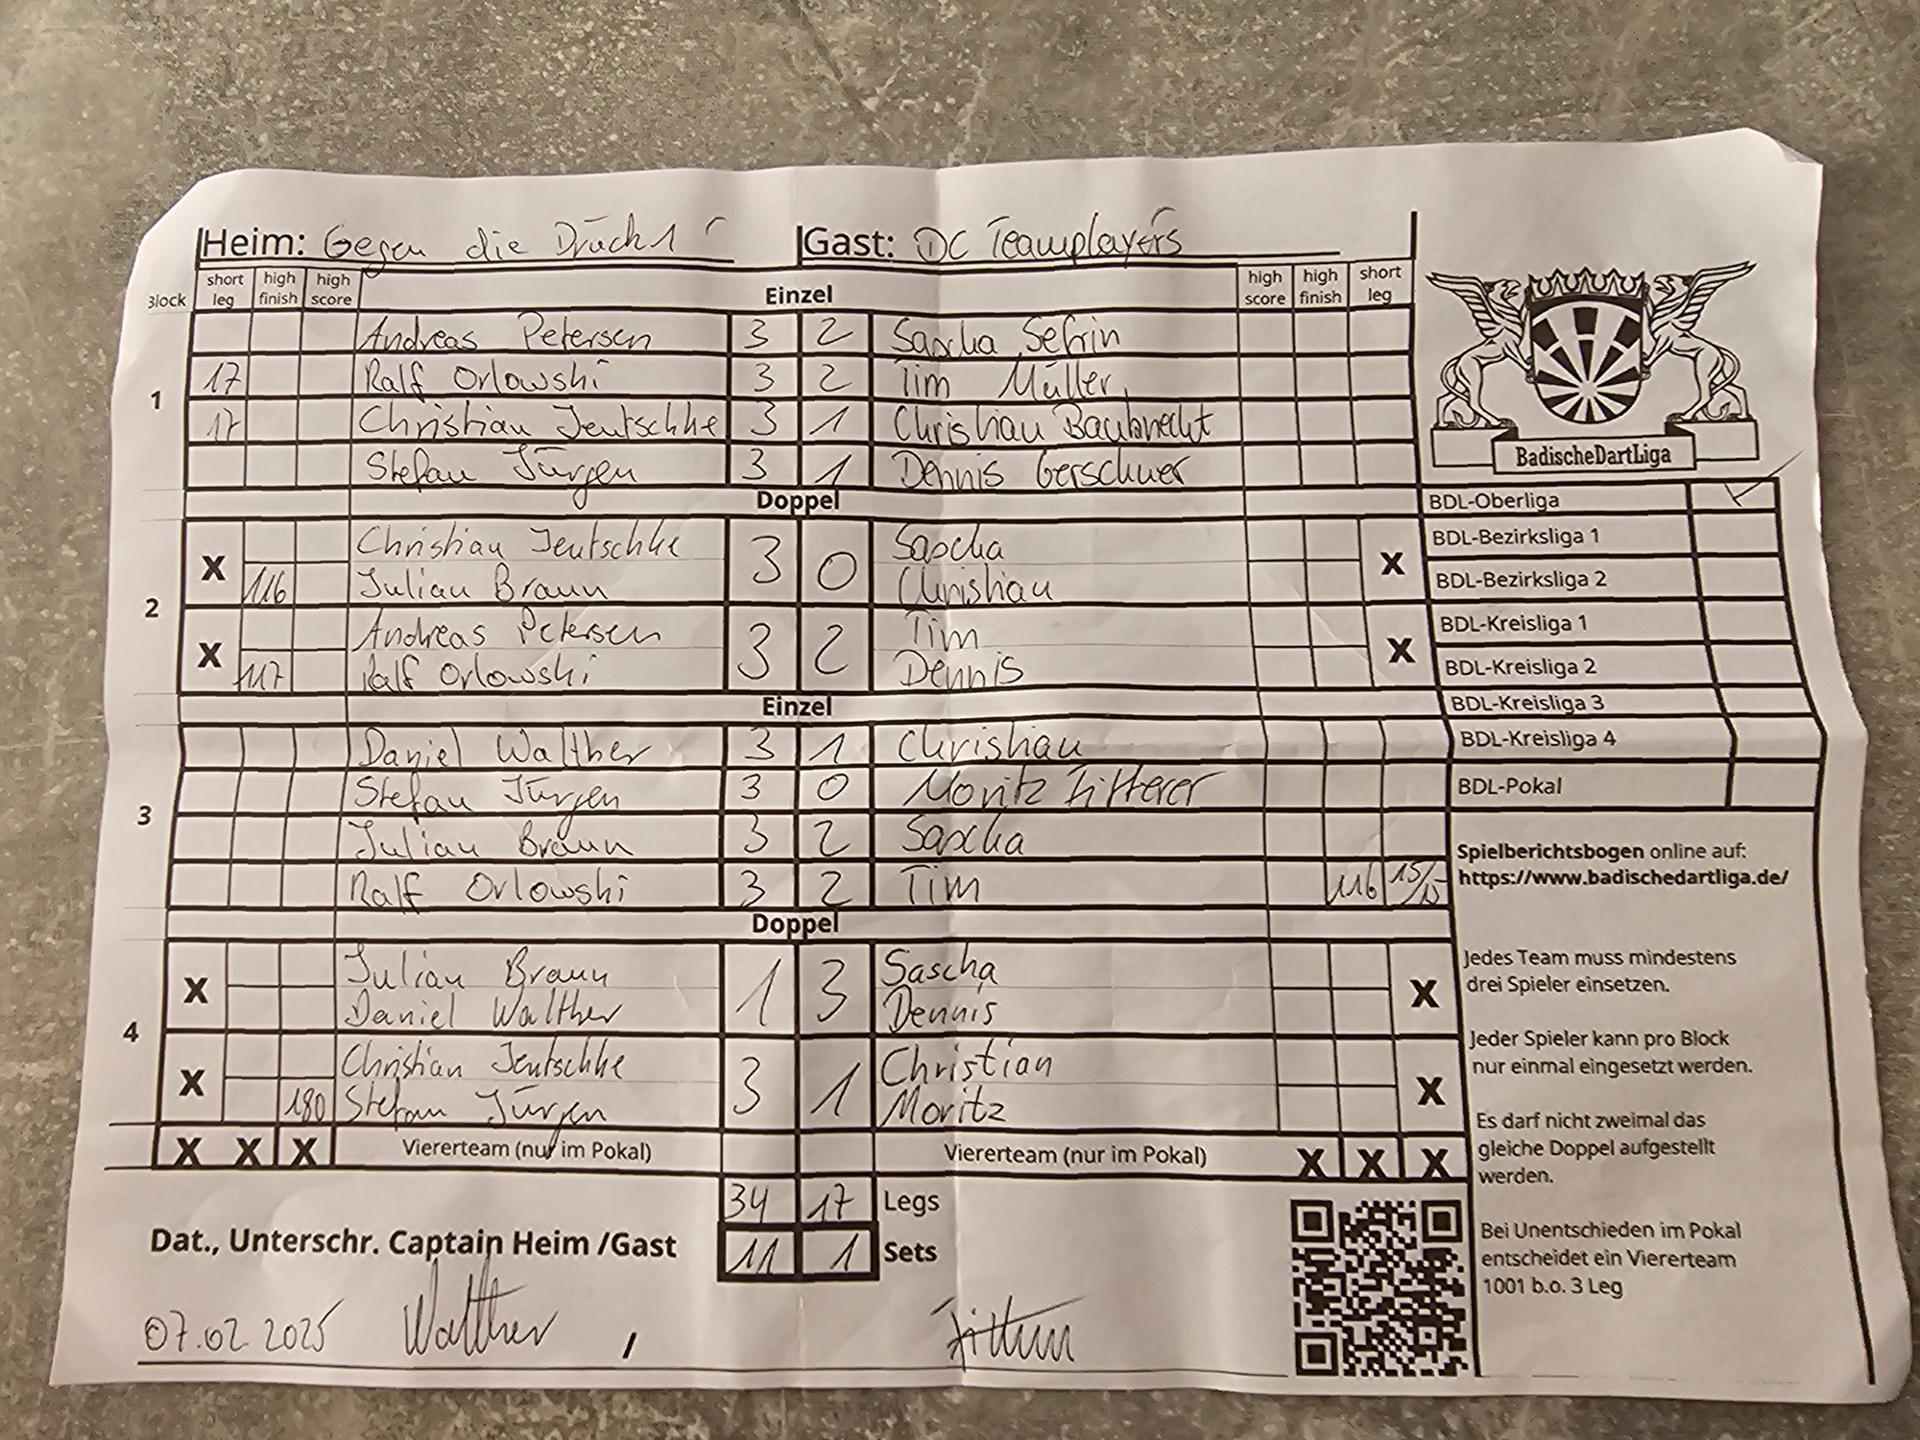 Heim: Gegen die Druck 1 Gast: DC Teamplayers
Block short leg high finish high score Einzel high score high finish short leg
1
Andreas Petersen 3 2 Sascha Sefrin
17 Ralf Orlowski 3 2 Tim Müller
17 Christian Jeutschke 3 1 Christian Baubnecht
Stefan Jürgen 3 1 Dennis Gerschner
Doppel
2
X Christian Jeutschke 3 0 Sascha X
116 Julian Braun Christian
X Andreas Petersen 3 2 Tim X
117 Ralf Orlowski Dennis
Einzel
3
Daniel Walther 3 1 Christian
Stefan Jürgen 3 0 Moritz Fitterer
Julian Braun 3 2 Sascha
Ralf Orlowski 3 2 Tim 116 15/15
Doppel
4
X Julian Braun 1 3 Sascha X
Daniel Walther Dennis
X Christian Jeutschke 3 1 Christian X
180 Stefan Jürgen Moritz
X X X Viererteam (nur im Pokal) Viererteam (nur im Pokal) X X X
34 17 Legs
Dat., Unterschr. Captain Heim /Gast 11 1 Sets
07.02.2025 Walther /
BadischeDartLiga
BDL-Oberliga
BDL-Bezirksliga 1
BDL-Bezirksliga 2
BDL-Kreisliga 1
BDL-Kreisliga 2
BDL-Kreisliga 3
BDL-Kreisliga 4
BDL-Pokal
Spielberichtsbogen online auf:
https://www.badischedartliga.de/
Jedes Team muss mindestens
drei Spieler einsetzen.
Jeder Spieler kann pro Block
nur einmal eingesetzt werden.
Es darf nicht zweimal das
gleiche Doppel aufgestellt
werden.
Bei Unentschieden im Pokal
entscheidet ein Viererteam
1001 b.o. 3 Leg